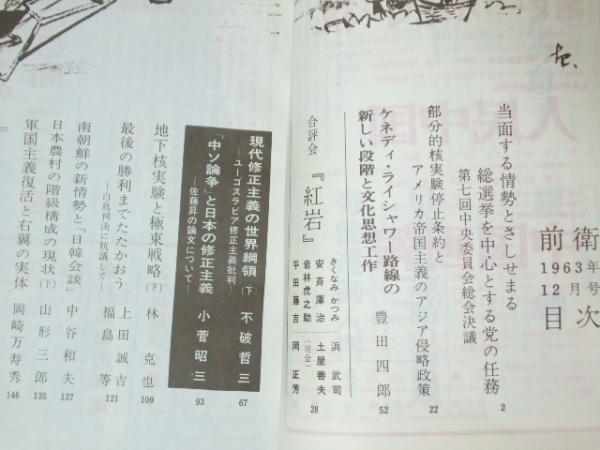 前衛
1963年
12月号
目次
当面する情勢とさしせまる
総選挙を中心とする党の任務
第七回中央委員会総会決議
2
部分的核実験停止条約と
アメリカ帝国主義のアジア侵略政策
22
ケネディ・ライシャワー路線の
新しい段階と文化思想工作
豊田四郎
52
合評会『紅岩』
きくなみ かつみ
安斉庫治
若林虎之助
平田藤吉
浜武司
土屋善夫
(司会)
岡正芳
28
現代修正主義の世界綱領(下)
―ユーゴスラビア修正主義批判
不破哲三
67
「中ソ論争」と日本の修正主義
―佐藤昇の論文について―
小菅昭三
93
地下核実験と極東戦略(下)
林克也
109
最後の勝利までたたかおう
―白鳥判決に抗議して―
上田誠吉
福島等
121
南朝鮮の新情勢と「日韓会談」
中谷和夫
127
日本農村の階級構成の現状(下)
山形三郎
135
軍国主義復活と右翼の実体
岡崎万寿秀
146